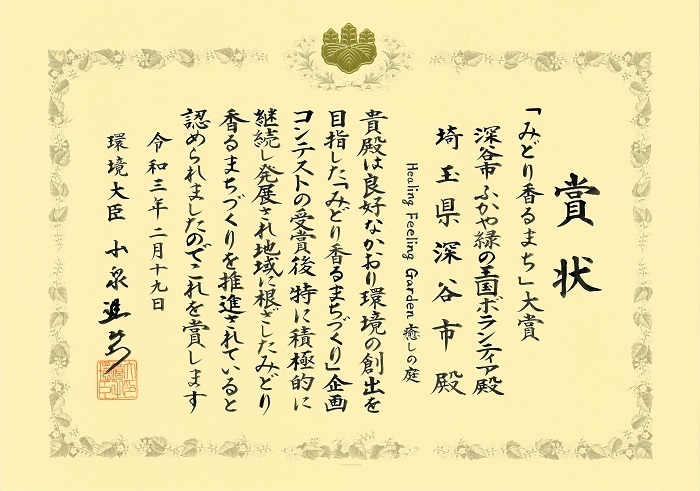 賞状
「みどり香るまち」大賞
深谷市 ふかや緑の王国ボランティア殿
埼玉県深谷市殿
Healing Feeling Garden 癒しの庭
貴殿は良好なかおり環境の創出を
目指した「みどり香るまちづくり」企画
コンテストの受賞後 特に積極的に
継続し発展され地域に根ざしたみどり
香るまちづくりを推進されていると
認められましたのでこれを賞します
令和三年二月十九日
環境大臣 小泉進次郎